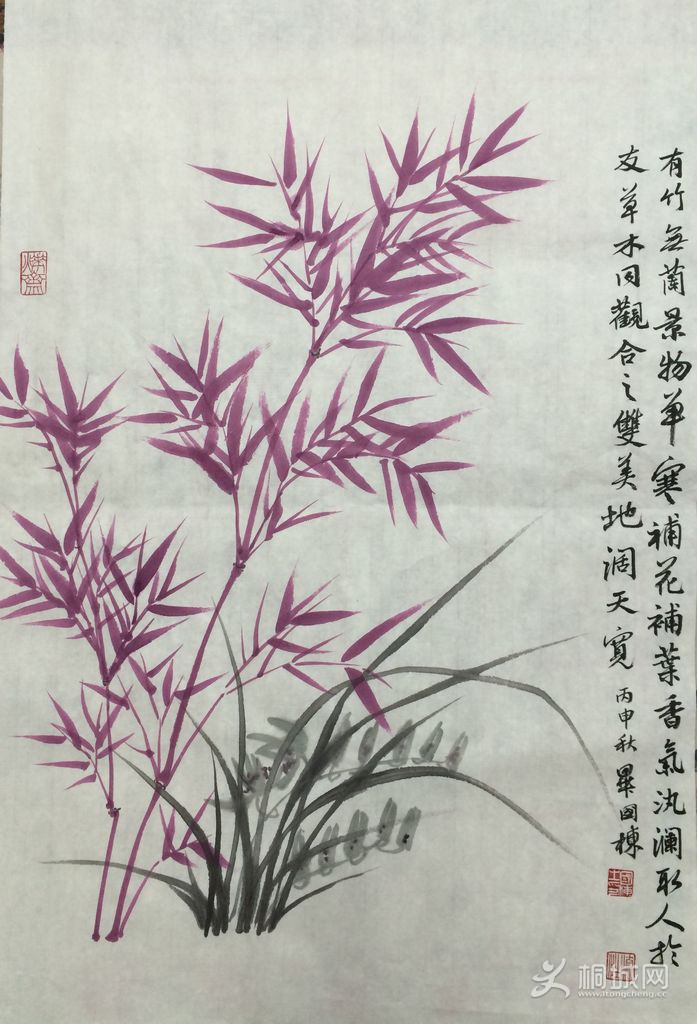 有竹無蘭景物單寒補花補葉香氣汍瀾取人於
友草木同觀合之雙美地闊天寬 丙申秋 畢國棟
桐城网
www.itongcheng.cc